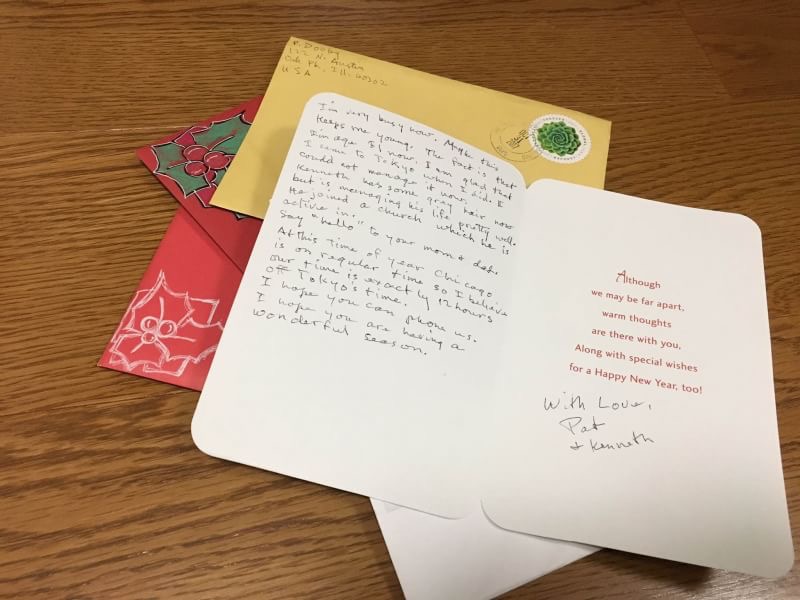 P. Dooley
122 N. Austin
Oak Pk., Ill. 60302
USA
I'm very busy now. Maybe this
keeps me young. The fact is that
I'm age 81 now. I am glad that
I came to Tokyo when I did. I
could not manage it now.
Kenneth has some gray hair now
but is managing his life pretty well.
He joined a church which he is
active in.
Say "hello" to your mom & dad.
At this time of year Chicago
is on regular time so I believe
our time is exactly 12 hours
off Tokyo's time.
I hope you can phone us.
I hope you are having a
wonderful season.
Although
we may be far apart,
warm thoughts
are there with you,
Along with special wishes
for a Happy New Year, too!
With Love,
Pat
+ Kenneth